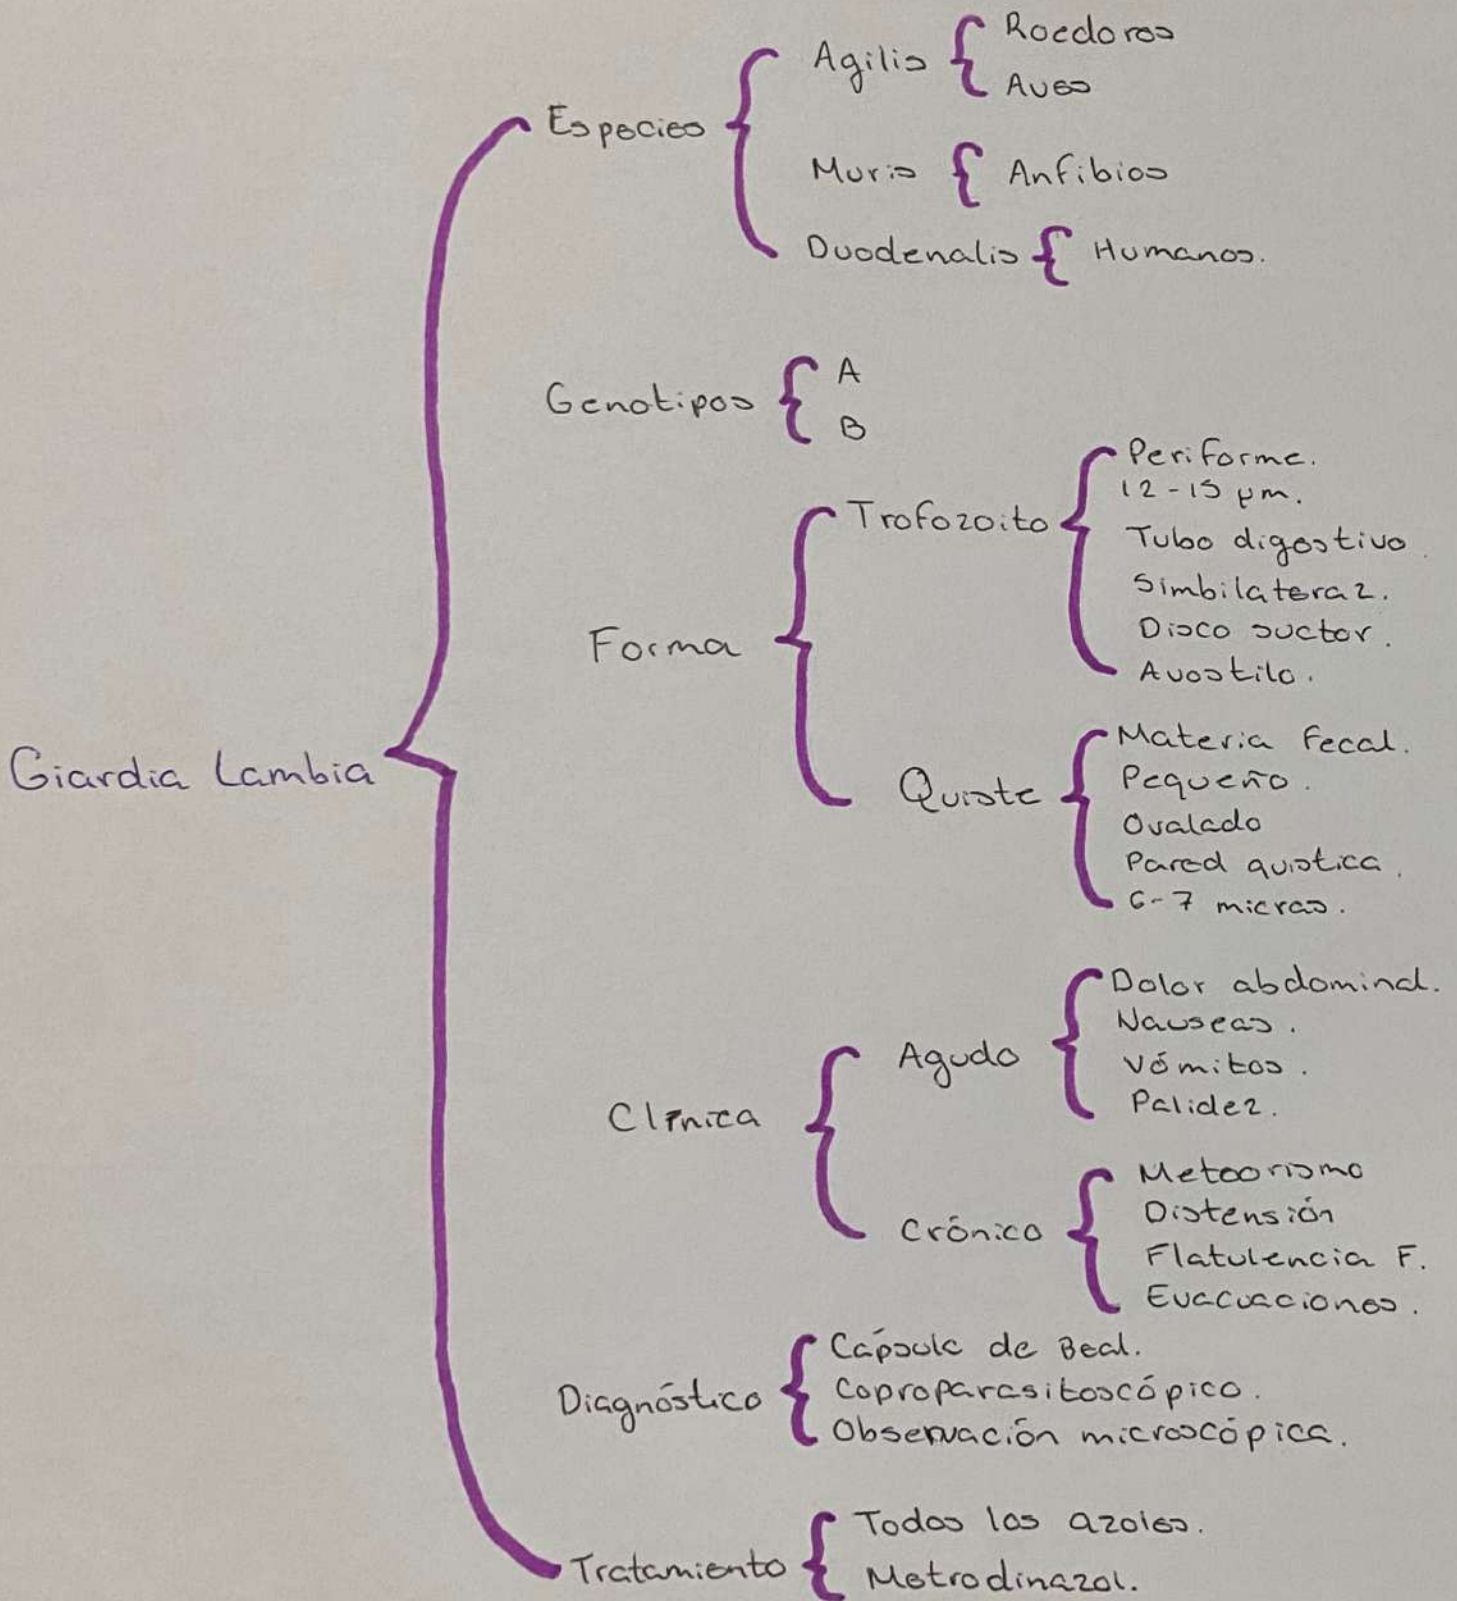 Giardia Lambia
Especies
Agilis
Roedores
Aves
Muris
Anfibios
Duodenalis
Humanos.
Genotipos
A
B
Forma
Trofozoito
Periforme.
12-15 µm.
Tubo digestivo.
Simbilateral.
Disco suctor.
Auostilo.
Quiste
Materia fecal.
Pequeño.
Ovalado
Pared quistica.
6-7 micras.
Clínica
Agudo
Dolor abdominal.
Nauseas.
Vómitos.
Palidez.
Crónico
Meteorismo
Distensión
Flatulencia F.
Evacuaciones.
Diagnóstico
Cápsula de Beal.
Coproparasitoscópico.
Observación microscópica.
Tratamiento
Todos los azoles.
Metrodinazol.